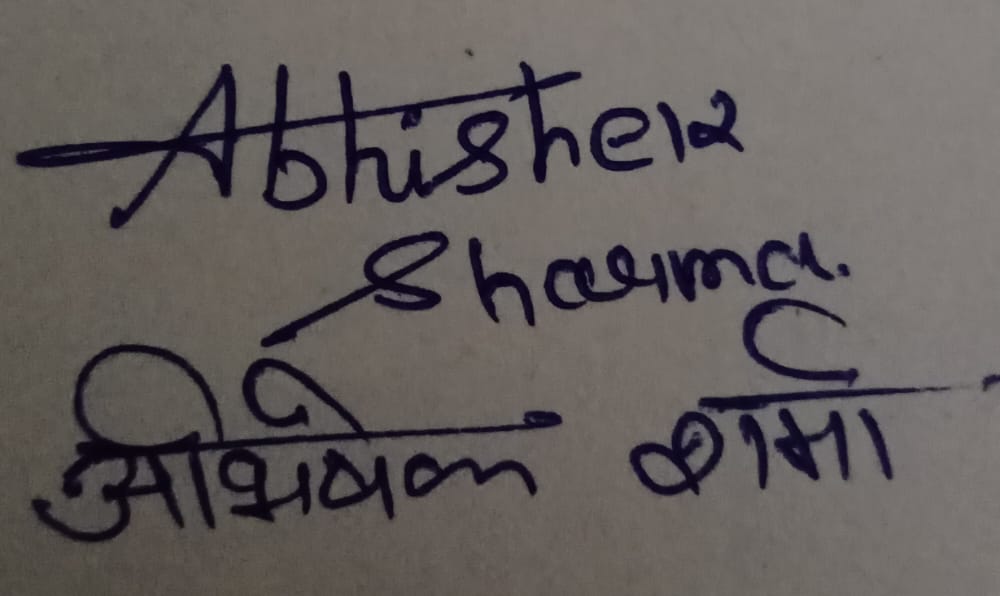 Abhishek
Sharma.
अभिषेक शर्मा